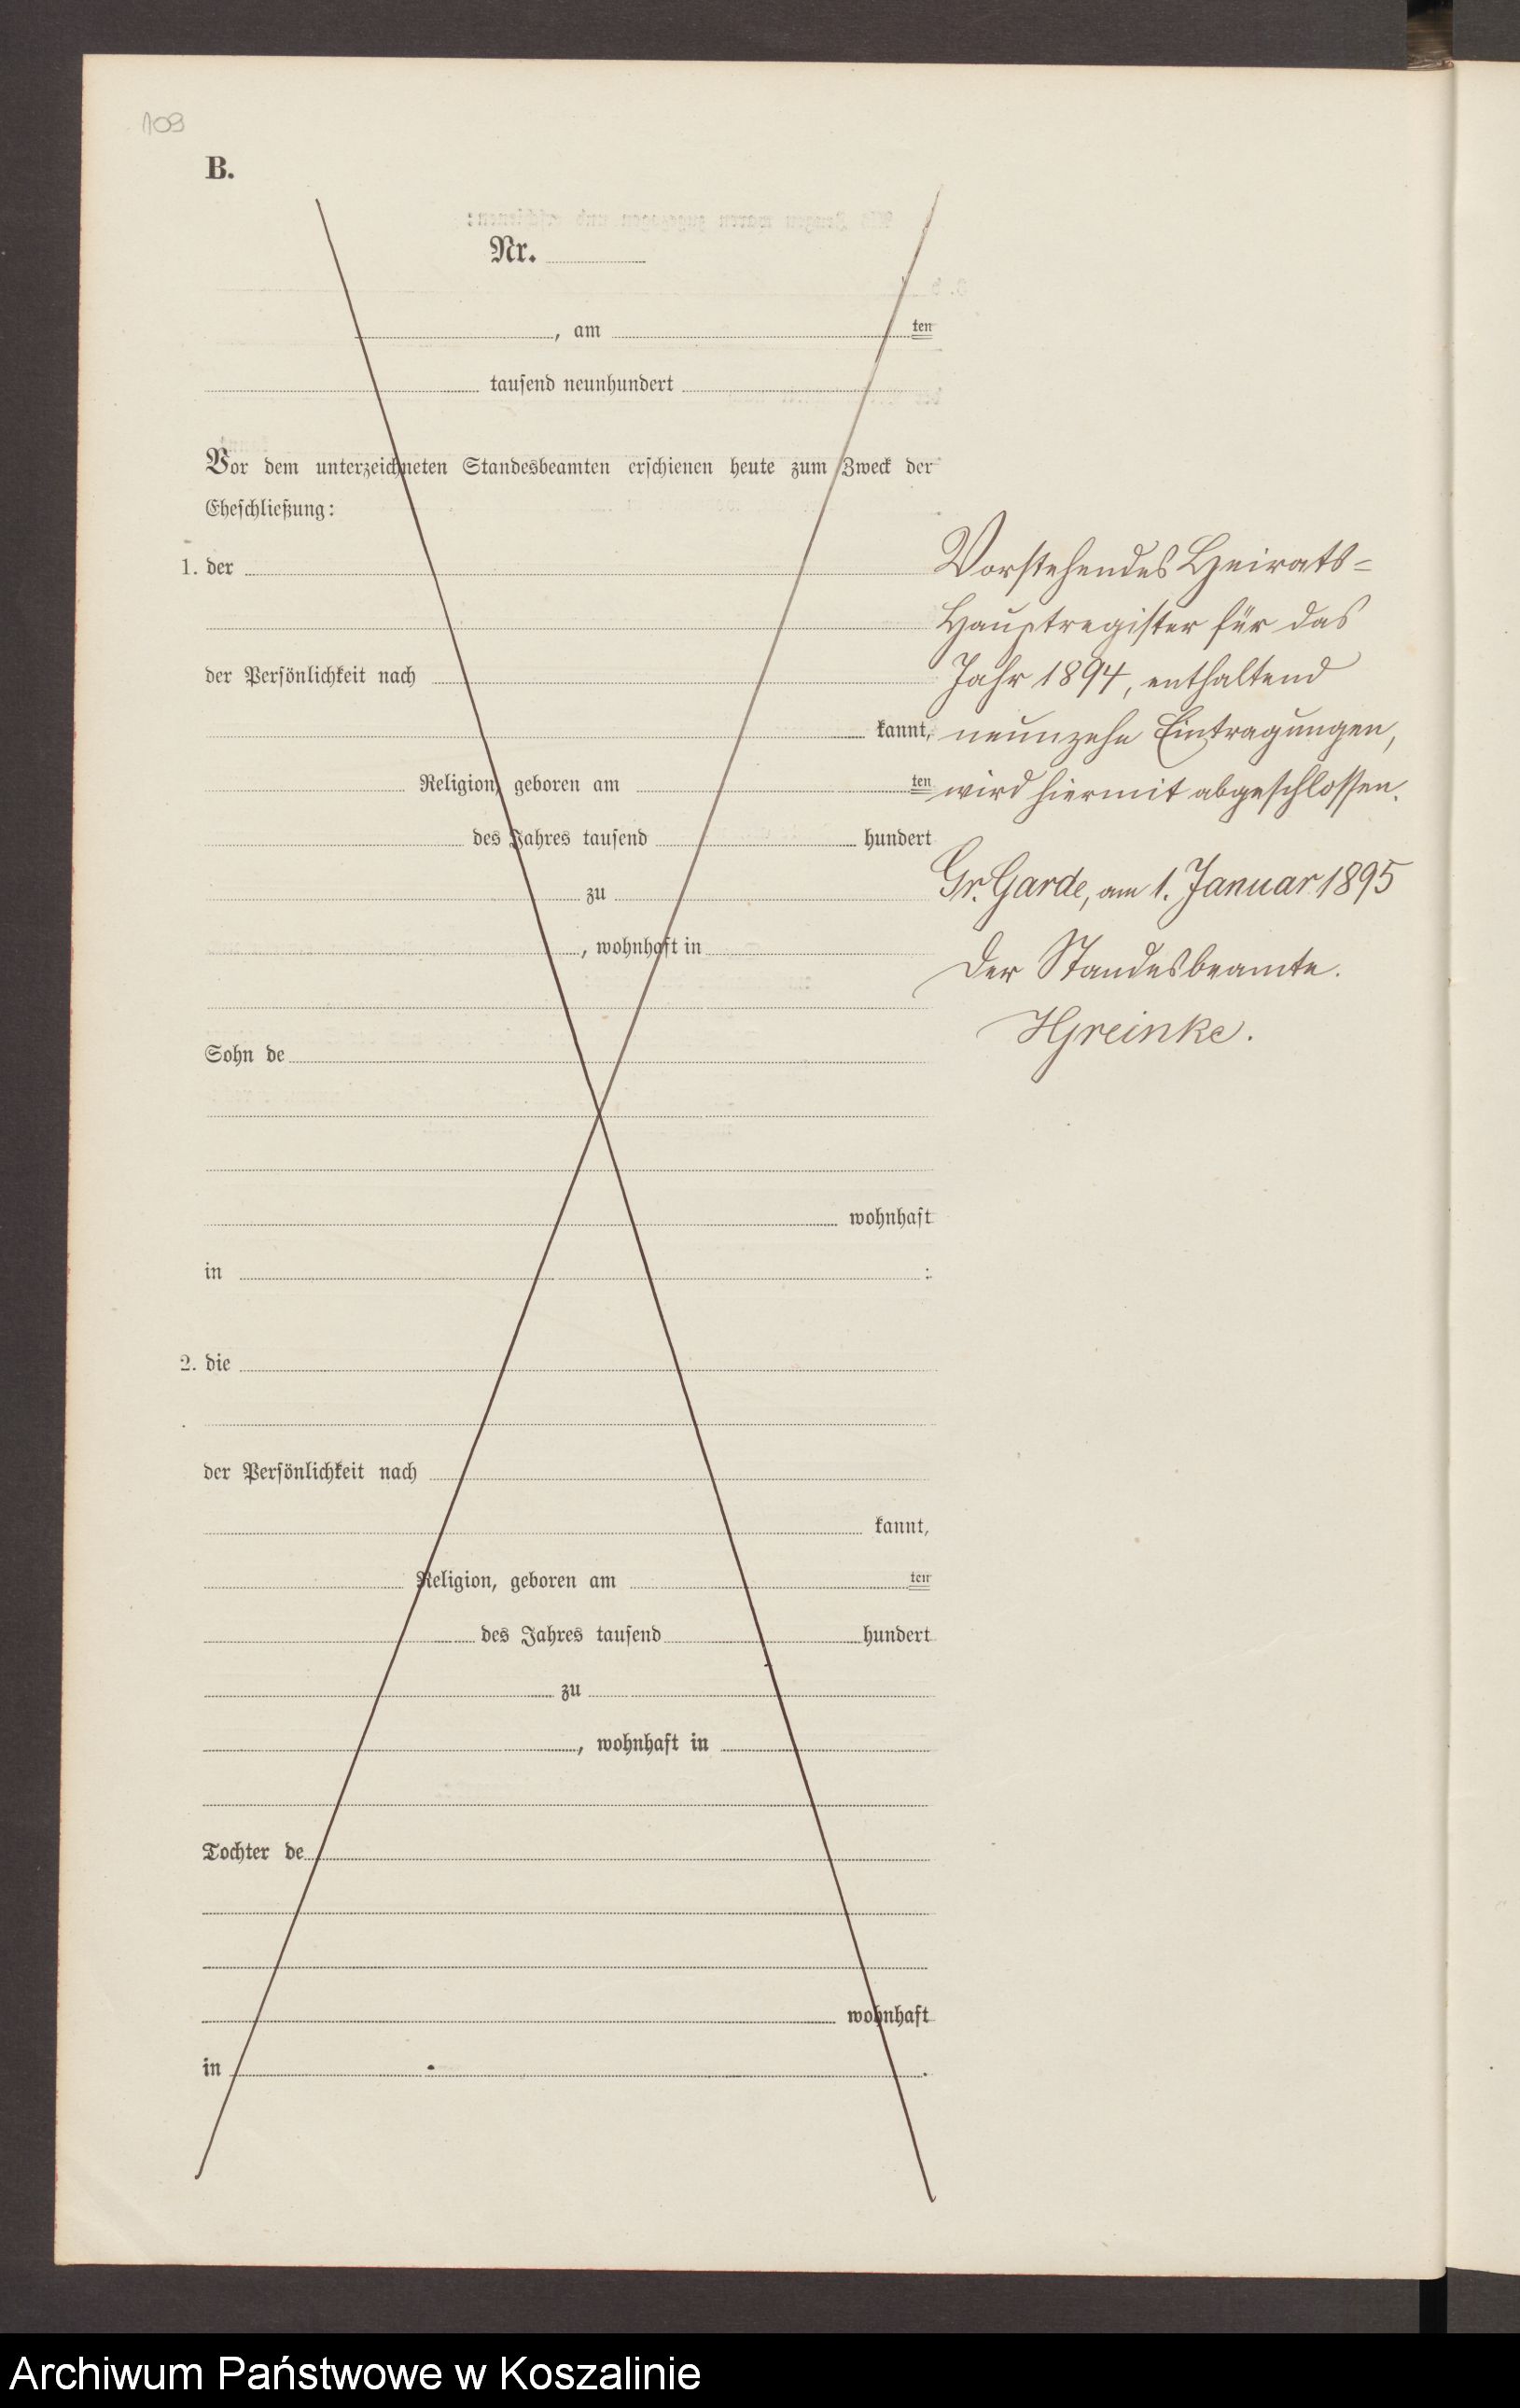 109
B.
Nr.
, am ten
tausend neunhundert
Vor dem unterzeichneten Standesbeamten erschienen heute zum Zweck der
Eheschließung:
1. der
der Persönlichkeit nach
kannt,
Religion, geboren am ten
des Jahres tausend hundert
zu
, wohnhaft in
Sohn de
wohnhaft
in :
2. die
der Persönlichkeit nach
kannt,
Religion, geboren am ten
des Jahres tausend hundert
zu
, wohnhaft in
Tochter de
wohnhaft
in .
Vorstehendes Heirats=
Hauptregister für das
Jahr 1894, enthaltend
neunzehn Eintragungen,
wird hiermit abgeschlossen.
Gr. Garde, am 1. Januar 1895
Der Standesbeamte.
Archiwum Państwowe w Koszalinie